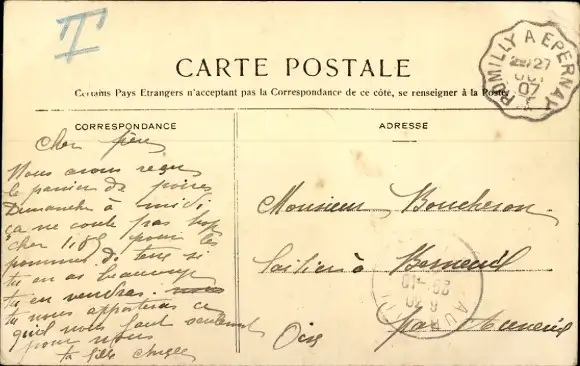 T
CARTE POSTALE
Certains Pays Etrangers n'acceptent pas la Correspondance de ce côté, se renseigner à la Poste.
ROMILLY A EPERNAY
27
OCT
07
CORRESPONDANCE
Cher père
Nous avons reçu
le panier de poires
Dimanche à midi
ça ne coute pas trop
cher pour les
pommes de terre si
tu en as beaucoup
tu en vendras
tu nous apporteras ce
quil nous faut seulement
pour nous
ta fille
ADRESSE
Monsieur Boucheron
laitier à
par Auneuil
Oise
29-10